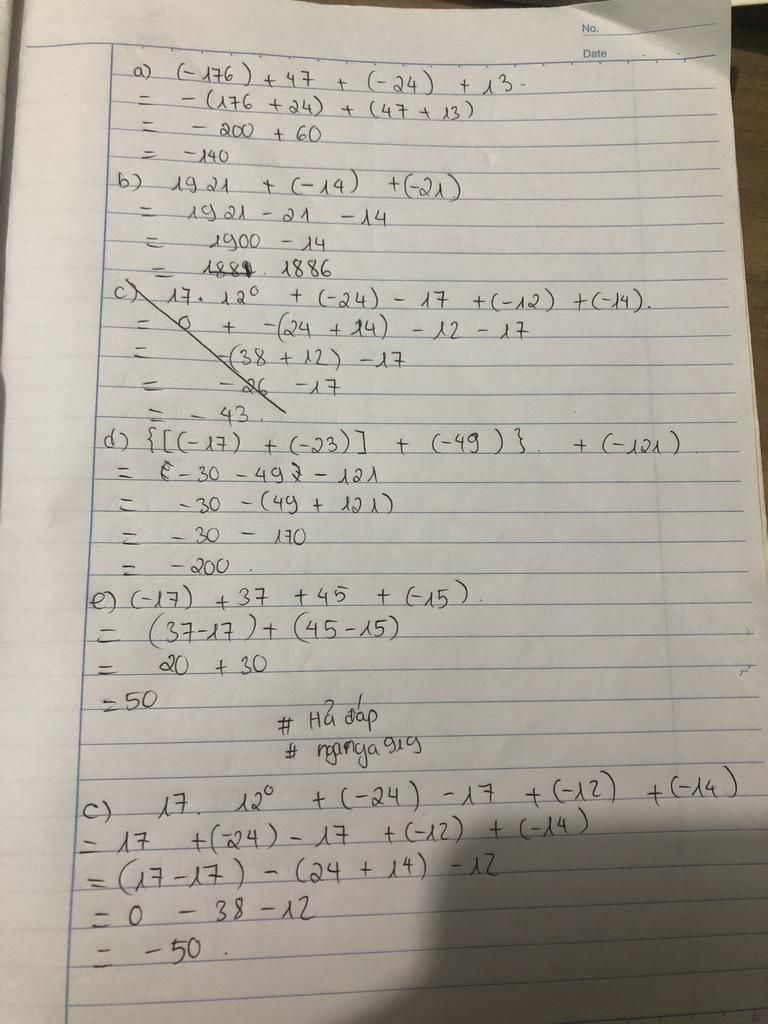 No.
Date
a) (-176) + 47 + (-24) + 13.
= -(176 + 24) + (47 + 13)
= - 200 + 60
= -140
b) 1921 + (-14) +(-21)
= 1921 - 21 - 14
= 1900 - 14
= 1881. 1886
c) 17. 12⁰ + (-24) - 17 + (-12) + (-14).
= 0 + -(24 + 14) - 12 - 17
= -(38 + 12) - 17
= - 26 - 17
= - 43.
d) {[(-17) + (-23)] + (-49)}. + (-121)
= {-30 - 49} - 121
= -30 - (49 + 121)
= - 30 - 170
= -200.
e) (-17) + 37 + 45 + (-15).
= (37-17) + (45-15)
= 20 + 30
= 50
# Hỏi đáp
# nganga919
c) 17. 12⁰ + (-24) - 17 + (-12) + (-14)
= 17 + (-24) - 17 + (-12) + (-14)
= (17-17) - (24 + 14) - 12
= 0 - 38 - 12
= - 50.